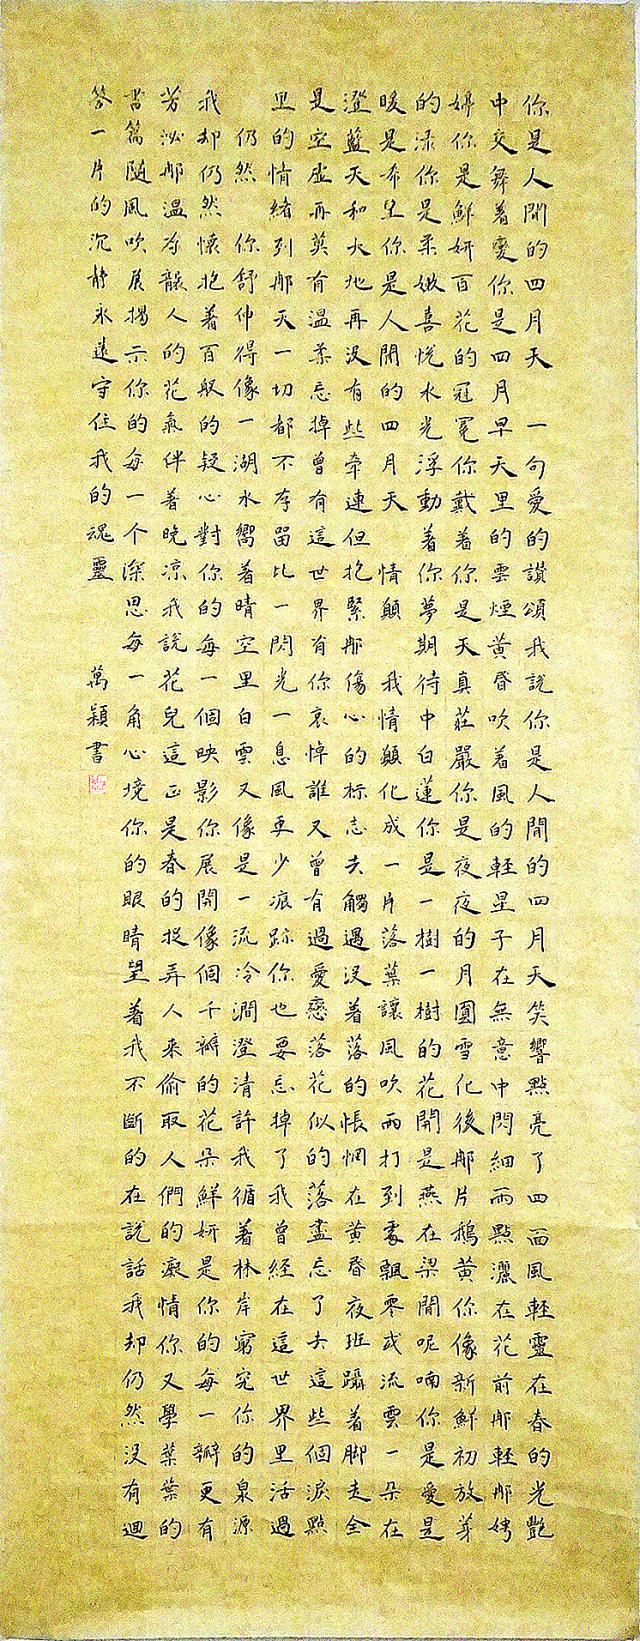 你是人間的四月天　一句愛的讚頌我説你是人間的四月天笑響點亮了四面風輕靈在春的光艷
中交舞着變你是四月早天里的雲煙黄昏吹着風的軽星子在無意中閃細雨點灑在花前那軽那娉
婷你是鮮妍百花的冠冕你戴着你是天真莊嚴你是夜夜的月圓雪化後那片鵝黄你像新鮮初放芽
的渌你是柔嫩喜悦水光浮動着你夢期待中白蓮你是一樹一樹的花開是燕在梁間呢喃你是愛是
暖是希望你是人間的四月天　情願　我情願化成一片落葉讓風吹雨打到處飄零或流雲一朵在
澄藍天和大地再没有些牽連但抱緊那傷心的标志去觸遇没着落的悵惘在黄昏夜班躡着脚走全
是空虚再莫有温柔忘掉曾有這世界有你哀悼誰又曾有過愛戀落花似的落盡忘了去這些個淚點
里的情緒到那天一切都不存留比一閃光一息風更少痕跡你也要忘掉了我曾經在這世界里活過
仍然　你舒伸得像一湖水嚮着晴空里白雲又像是一流冷澗澄清許我循着林岸窮究你的泉源
我却仍然懷抱着百般的疑心對你的每一個映影你展開像個千瓣的花朵鮮妍是你的每一瓣更有
芳泌那温存襲人的花氣伴着晚凉我説花兒這正是春的捉弄人来偷取人們的癡情你又學葉葉的
書篇随風吹展揭示你的每一个深思每一角心境你的眼睛望着我不斷的在説話我却仍然没有迴
答一片的沉静永遠守住我的魂靈　萬穎書